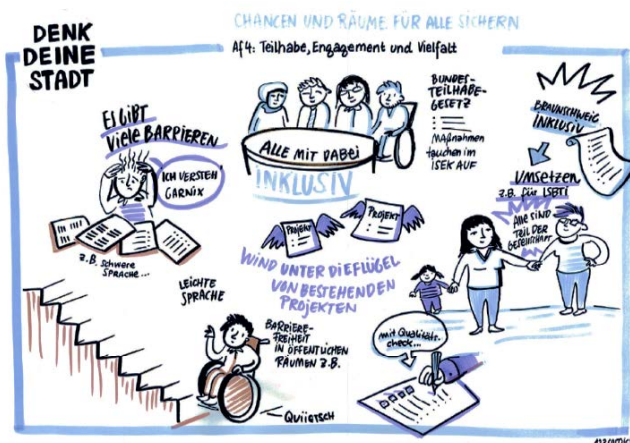 DENK
DEINE
STADT
CHANCEN UND RÄUME FÜR ALLE SICHERN
Af4: Teilhabe, Engagement und Vielfalt
ES GIBT
Viele BARRIEREN
ICH VERSTEH'
GARNIX
z.B. schwere
SPRACHE...
ALLE MIT DABEI
INKLUSIV
BUNDES-
TEILHABE-
GESETZ
MAßNAHMEN
tauchen im
ISEK AUF
BRAUNSCHWEIG
INKLUSIV
UMSETZEN
z.B. für LSBTI
Alle SIND
TEIL DER
GESELLSCHAFT
PROJEKT
PROJEKT
WIND UNTER DIE FLÜGEL
VON BESTEHENDEN
PROJEKTEN
LEICHTE
SPRACHE
BARRIERE-
FREIHEIT
IN ÖFFENTLICHEN
RÄUMEN Z.B.
QUIIETSCH
mit Qualitäts-
check...